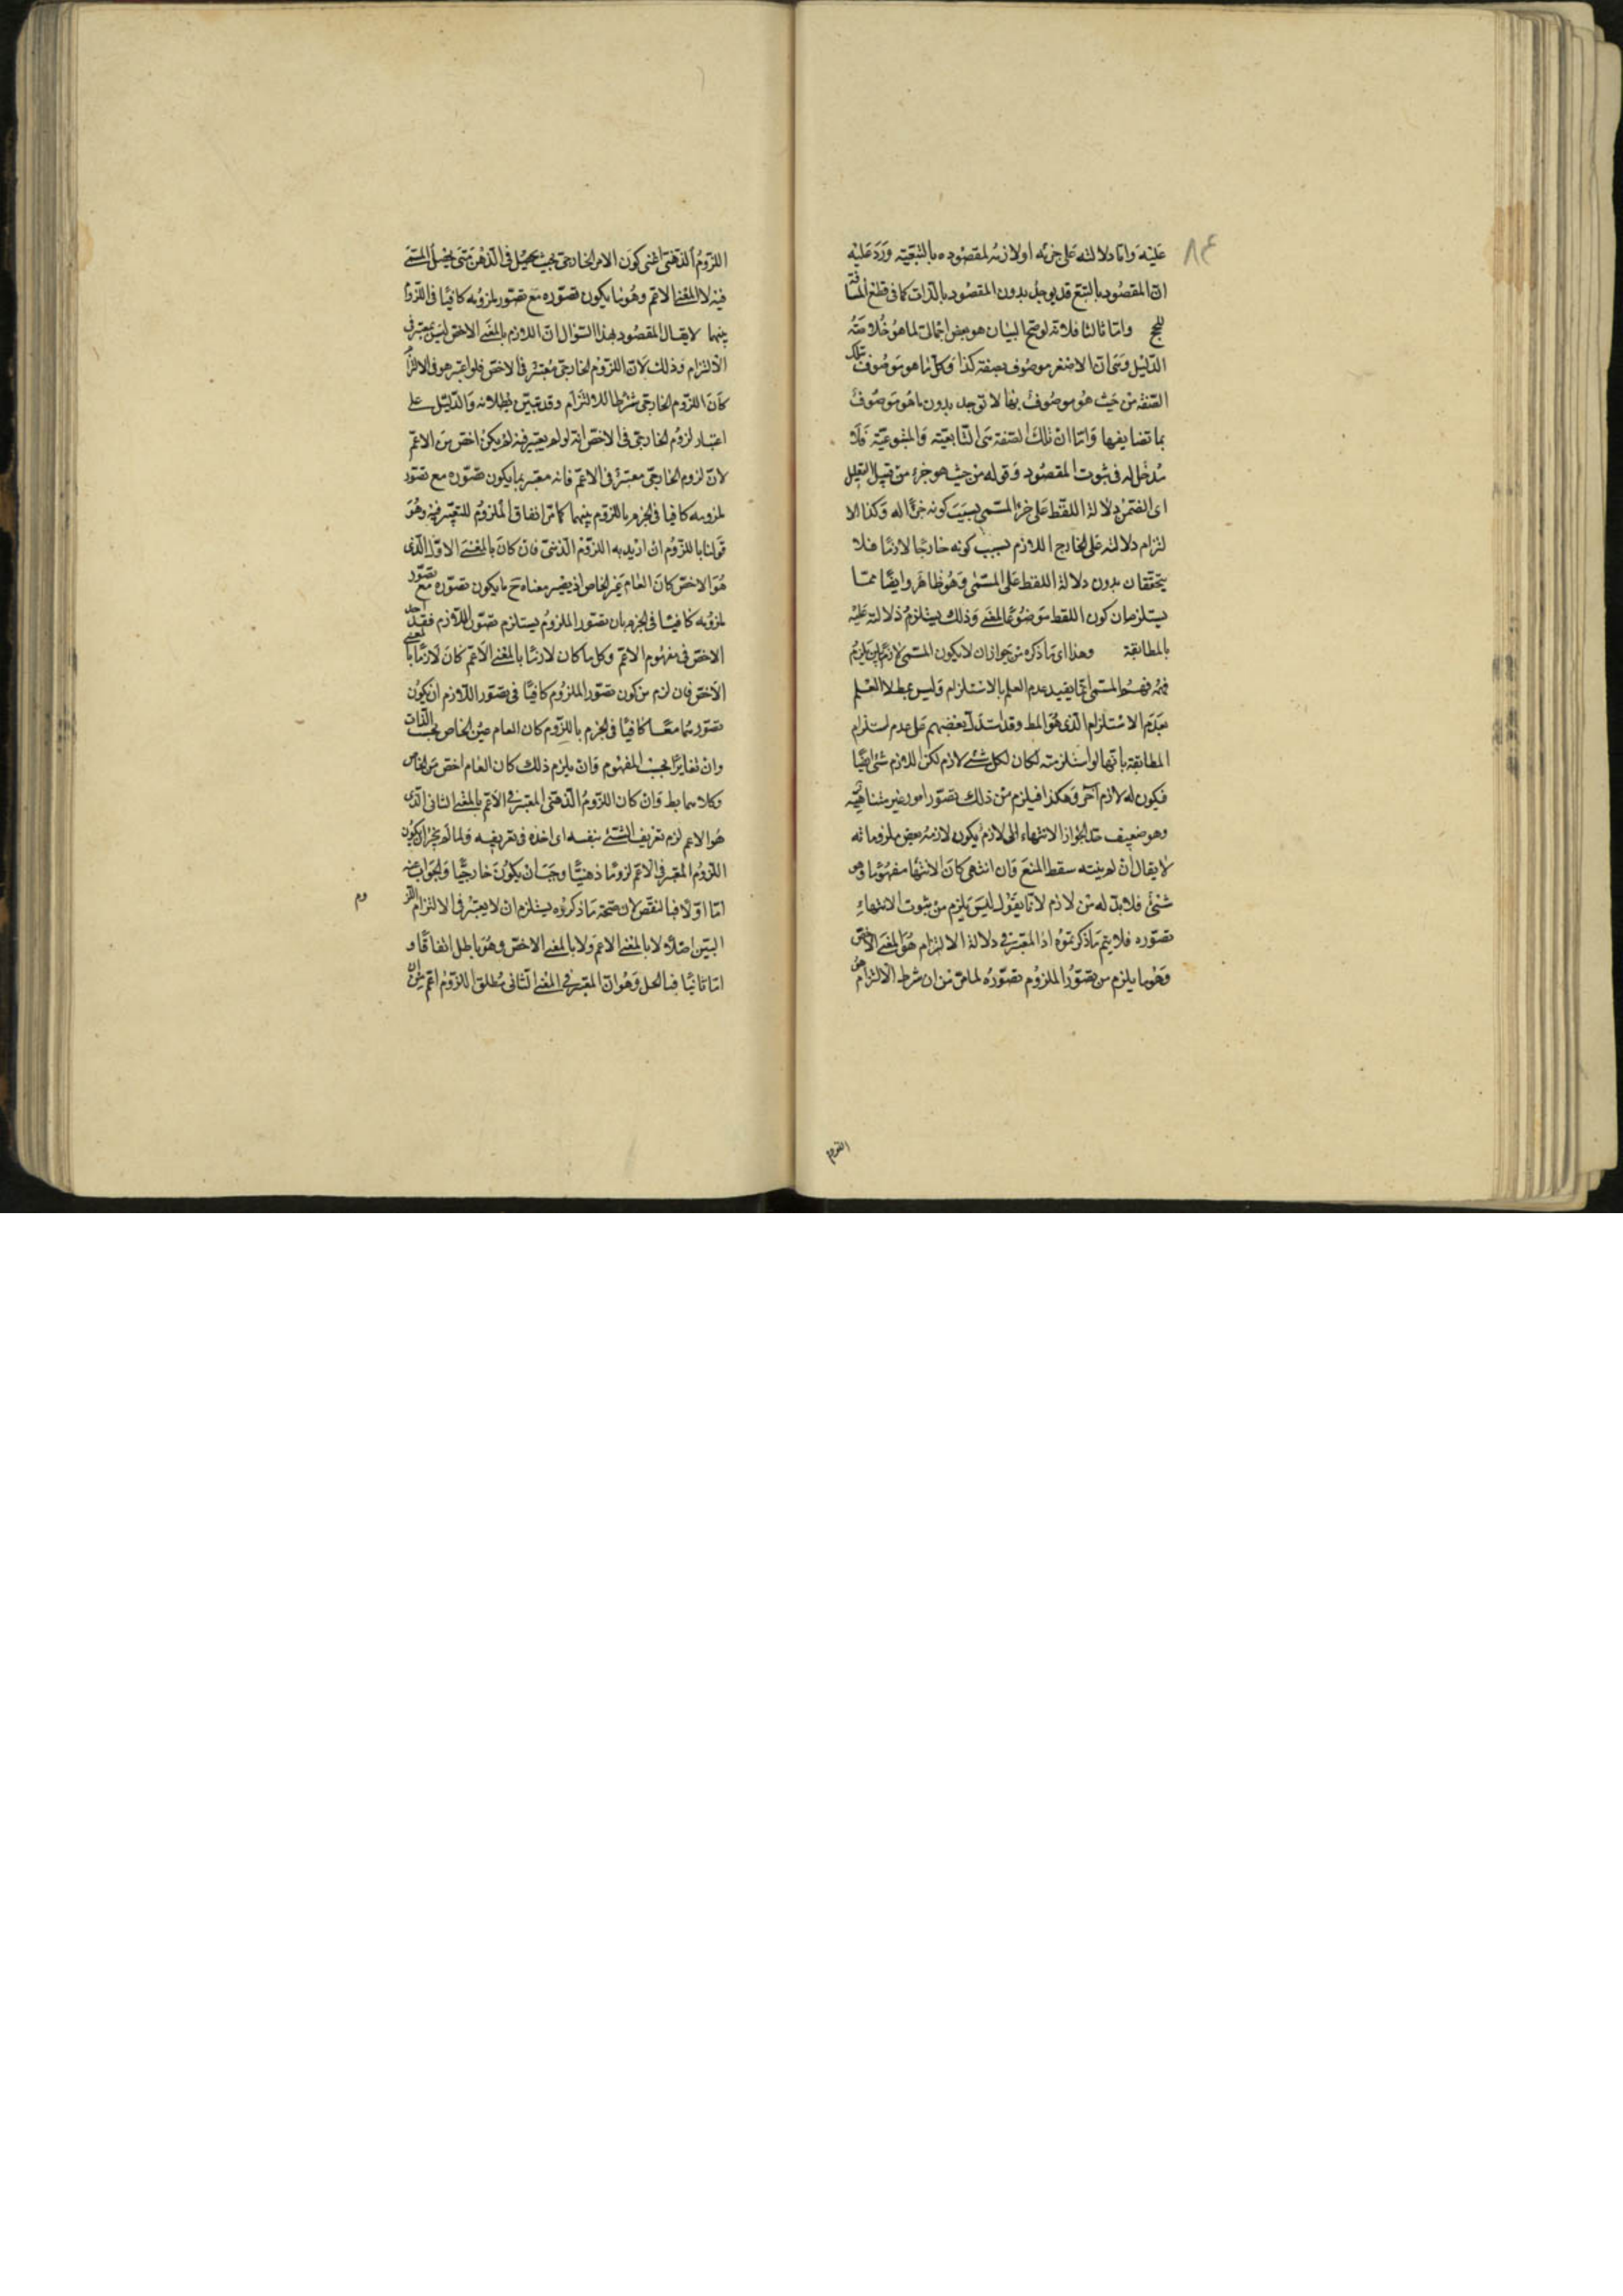 ٨٤
عليه واما دلالته على جزئه او لازمه لمقصوده بالتبعية ورد عليه
ان المقصود بالتبع قد يوجد بدون المقصود بالذات كما فى قطع المسافة
للحج واما ثالثا فلانه لو صح البيان هو بعض اجمالى لما هو خلاصته
الدليل وهى ان الاصغر موصوف بصفة كذا وكل ما هو موصوف بتلك
الصفة من حيث هو موصوف بها لا توجد بدون ما هو موصوف
بما تضايفها واما ان تلك الصفة هى التابعية والمتبوعية فلا
مدخل له فى ثبوت المقصود وقوله من حيث هو جزء من قبيل التعليل
اى التضمن دلالة اللفظ على جزء المسمى بسبب كونه جزءا له وكذا الا
لتزام دلالته على الخارج اللازم بسبب كونه خارجا لازما فلا
يتحققان بدون دلالة اللفظ على المسمى وهو ظاهر وايضا هما
يستلزمان كون اللفظ موضوعا لمعنى وذلك يستلزم دلالته عليه
بالمطابقة وهذا اى ما ذكره من جواز ان لا يكون المسمى لازم بين يلزم
فهمه فهم المسمى انما يفيد عدم العلم بالاستلزام وليس بمط لا العلم
بعدم الاستلزام الذى هو المط وقد استدل بعضهم على عدم استلزام
المطابقة بانها لو استلزمته لكان لكل شئ لازم لكن اللازم شئ ايضا
فيكون له لازم آخر وهكذا فيلزم من ذلك تصور امور غير متناهية
وهو ضعيف جدا لجواز الانتهاء الى لازم يكون لازمه بعض ملزوماته
لا يقال ان لم ينته سقط المنع وان انتهى كان الانتهاء مفهوما وهو
شئ فلا بد له من لازم لانا نقول ليس يلزم من ثبوت الانتهاء
تصوره فلا يتم ما ذكرتموه اذ المعتبر فى دلالة الالتزام هو المعنى الاخص
وهو ما يلزم من تصور الملزوم تصوره لما مر من ان شرط الالتزام هو
اللزوم
اللزوم الذهنى اعنى كون الامر الخارجى بحيث يحصل فى الذهن متى يحصل المسمى
فيه لا المعنى الاعم وهو ما يكون تصوره مع تصور ملزومه كافيا فى اللزوم
بينهما لا يقال المقصود بهذا السؤال ان اللازم بالمعنى الاخص ليس بمعتبر فى
الالتزام وذلك لان اللزوم الخارجى معتبر فى الاخص فلو اعتبر هو فى الالتزام
كان اللزوم الخارجى شرطا للالتزام وقد تبين بطلانه والدليل على
اعتبار لزوم الخارجى فى الاخص انه لو لم يعتبر فيه لم يكن اخص من الاعم
لان لزوم الخارجى معتبر فى الاعم فانه معتبر بما يكون تصوره مع تصور
ملزومه كافيا فى الجزم باللزوم بينهما كما مر انفا والملزوم المعتبر فيه وهو
قولنا باللزوم ان اريد به اللزوم الذهنى فان كان بالمعنى الاول الذى
هو الاخص كان العام عين الخاص اذ يصير معناه ح ما يكون تصوره مع تصور
ملزومه كافيا فى الجزم بان تصور الملزوم يستلزم تصور اللازم فقد اخذ
الاخص فى مفهوم الاعم وكل ما كان لازما بالمعنى الاعم كان لازما بالمعنى
الاخص فان لزم من كون تصور الملزوم كافيا فى تصور اللازم ان يكون
تصورهما معا كافيا فى الجزم باللزوم كان العام عين الخاص بحسب الذات
وان تغايرا بحسب المفهوم وان لم يلزم ذلك كان العام اخص من الخاص
وكلاهما بط وان كان اللزوم الذهنى المعتبر فى الاعم بالمعنى الثانى الذى
هو الاعم لزم تعريف الشئ بنفسه اى اخذه فى تعريفه ولما لم يجز ان يكون
اللزوم المعتبر فى الاعم لزوما ذهنيا وجب ان يكون خارجيا والجواب عنه
اما اولا فبالنقض لان صحة ما ذكرتموه يستلزم ان لا يعتبر فى الالتزام اللز
وم
البين اصلا لا بالمعنى الاعم ولا بالمعنى الاخص وهو باطل اتفاقا و
اما ثانيا فبالحل وهو ان المعتبر فى المعنى الثانى مطلق اللزوم اعم من ان